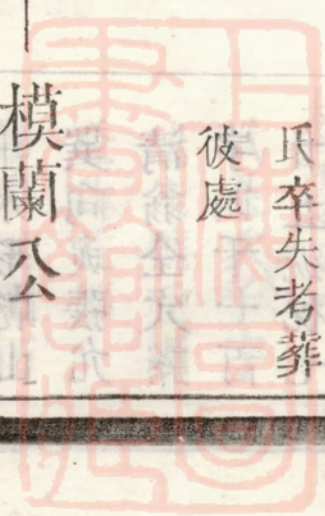 氏卒失考葬
彼處
模蘭公